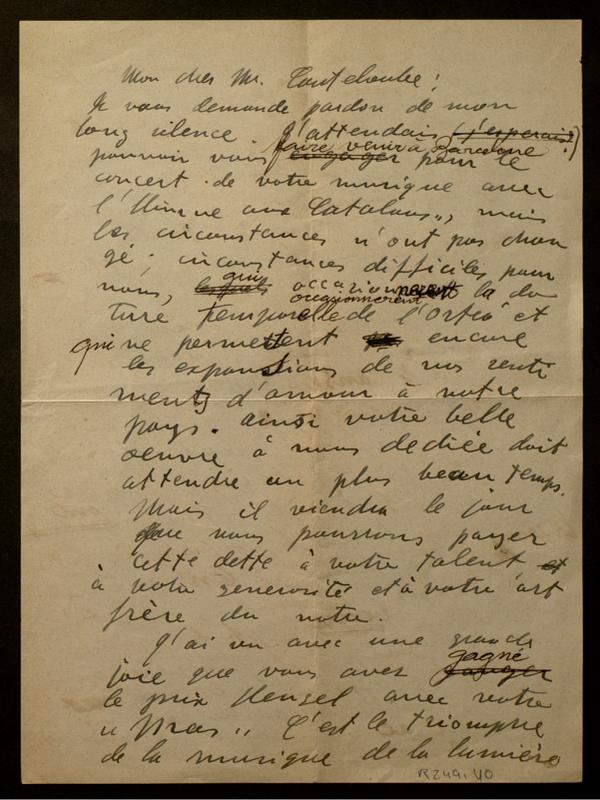 Mon cher Mr. Canteloube:
Je vous demande pardon de mon
long silence j'attendais (j'esperais!)
pouvoir vous engager faire venir a Barcelone pour le
concert de votre musique avec
l'Himne aux Catalans", mais
les circonstances n'ont pas chan
gé: circonstances difficiles pour
nous, lesquels qui occasionnerent occasionnerent la
ture temporelle de l'Orfeó et
qui ne permettent encore
les expansions de nos senti
ments d'amour à notre
pays. ainsi votre belle
oeuvre à nous dediée doit
attendre un plus beau temps.
Mais il viendra le jour
que nous pourrons payer
cette dette à votre talent et
à votre generosité et à votre art
frère du notre.
J'ai vu avec une grande
joie que vous avez gagné
le prix Heugel avec votre
"Mas". C'est le triomphe
de la musique de la lumière
R249.40